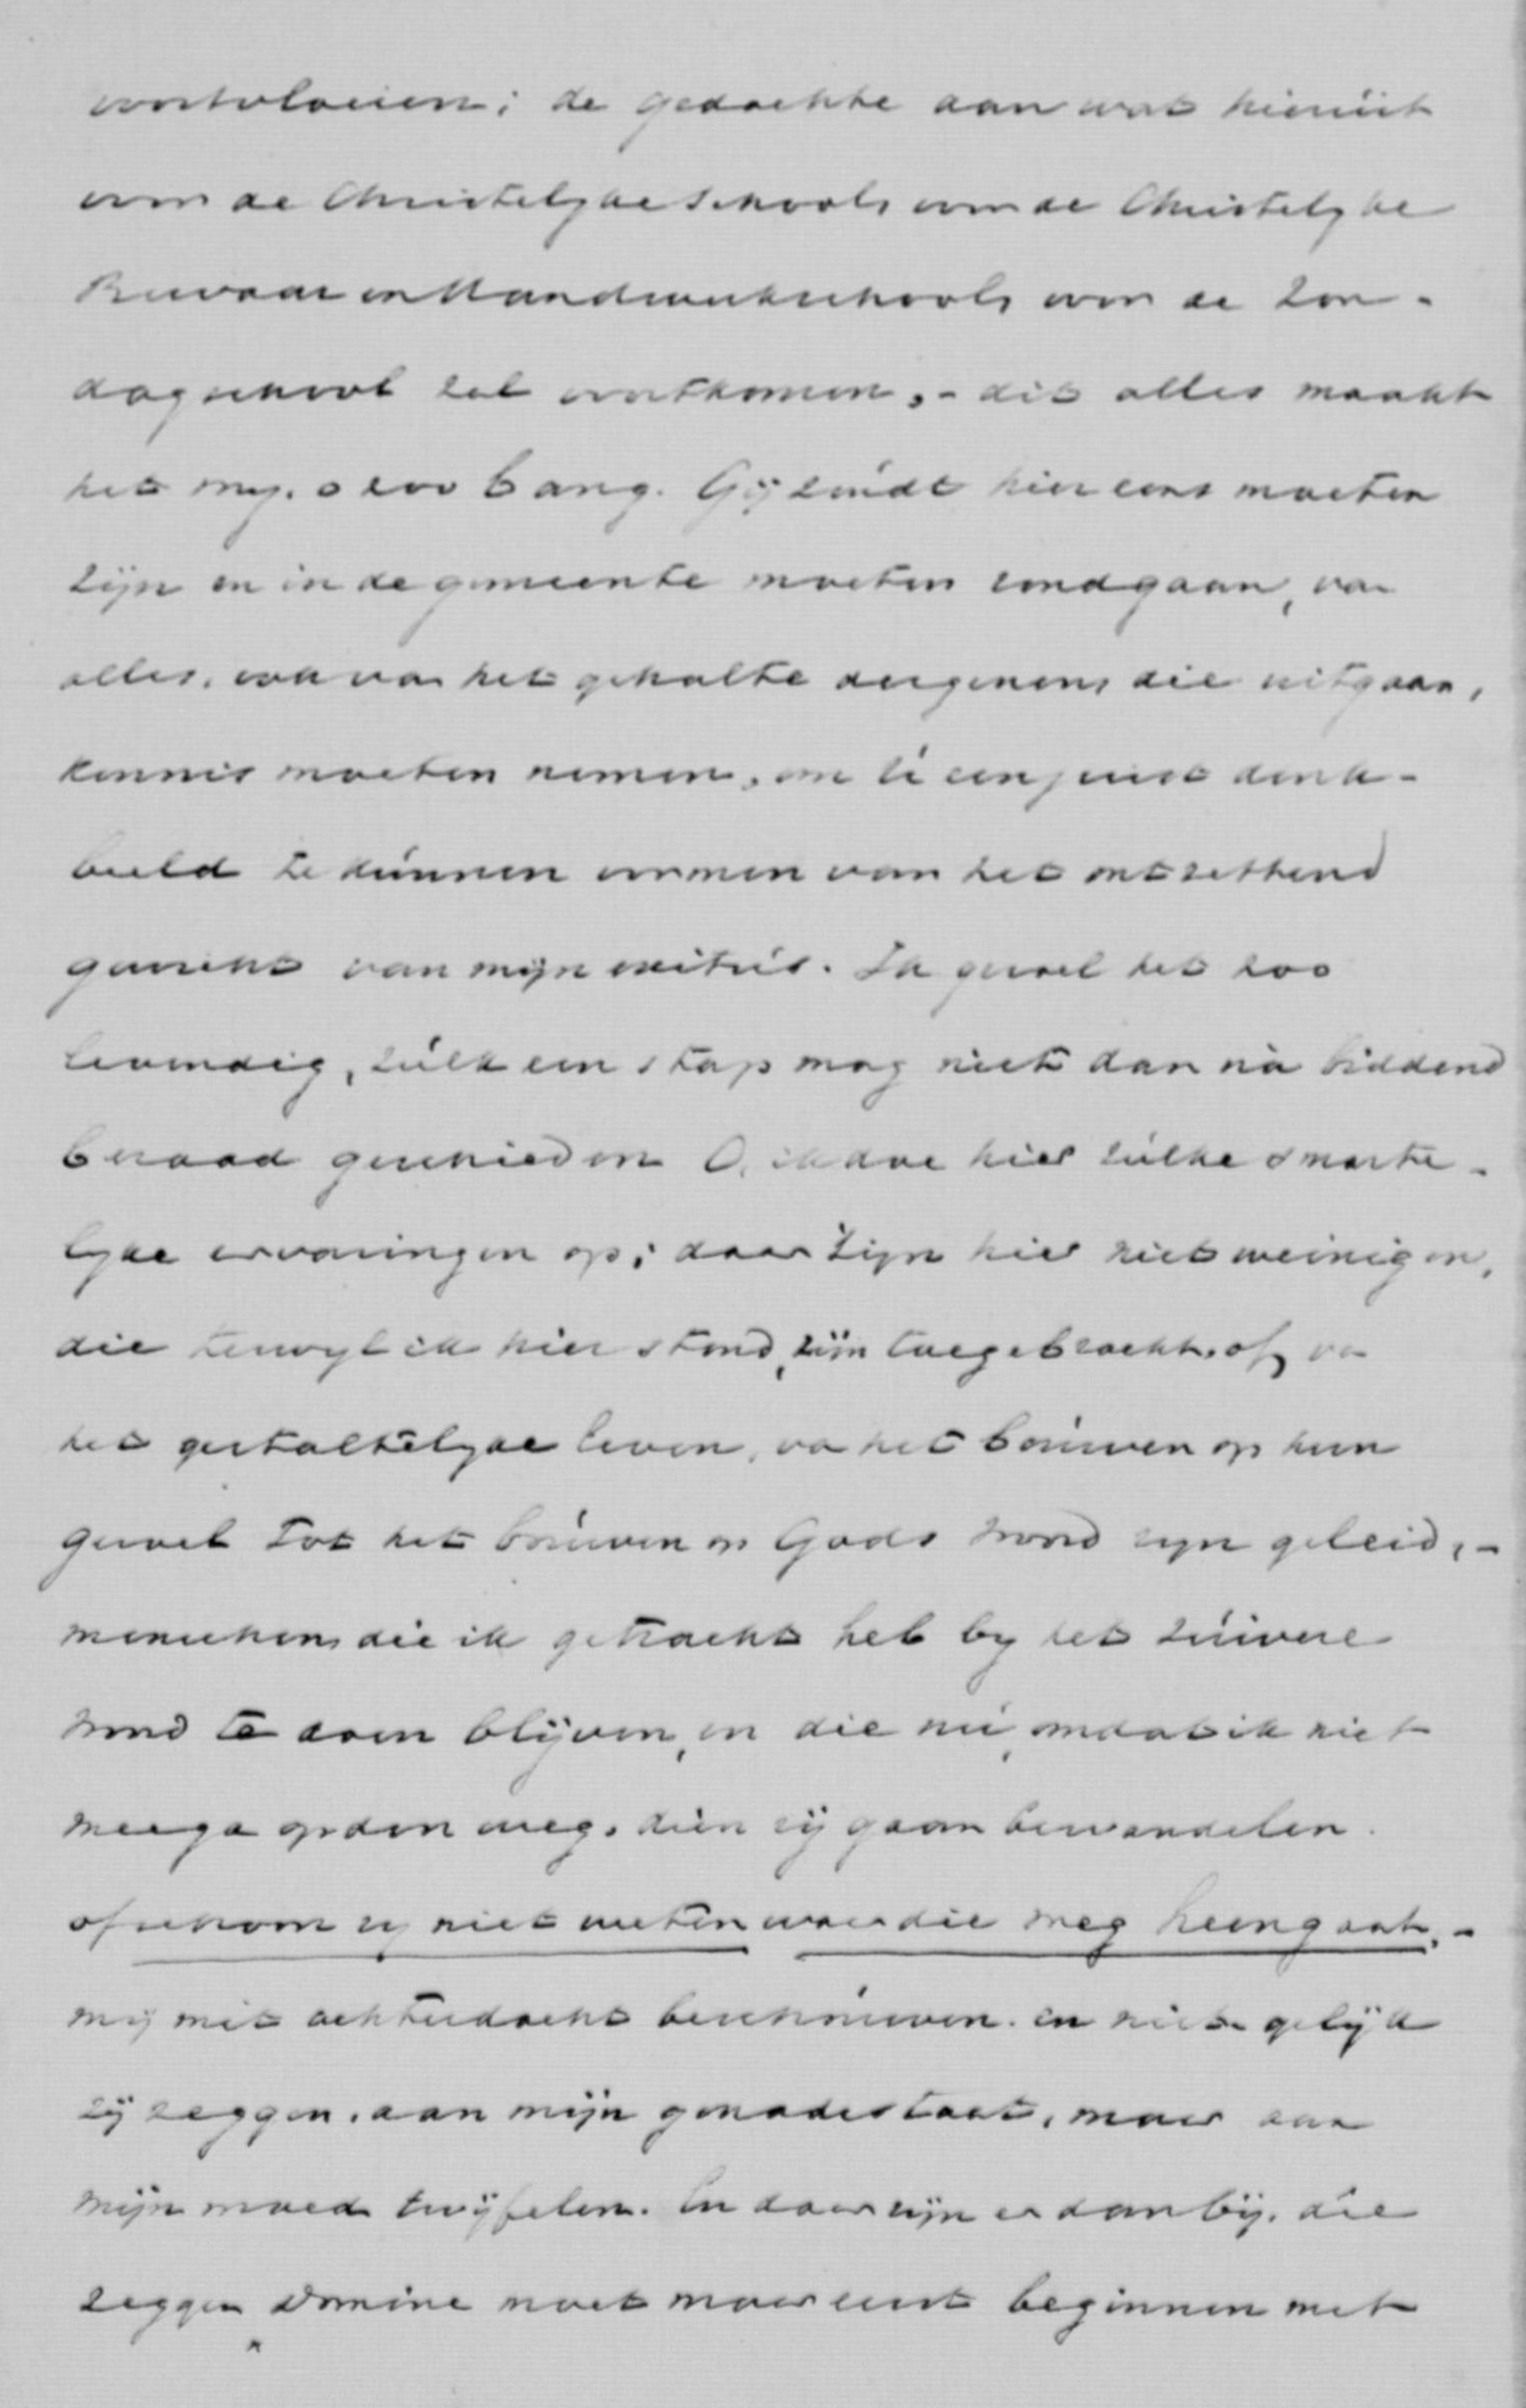 voortvloeien; de gedachte aan wat hieruit
voor de Christelijke School, voor de Christelijke
Bewaar en Handwerkschool, voor de Zon-
dagschool zal voortkomen, - dit alles maakt
het mij, o zoo bang. Gij zoudt hier eens moeten
zijn en in de gemeente moeten rondgaan, van
alles, ook van het gehalte dergenen, die uitgaan,
kennis moeten nemen, om U een juist denk-
beeld te kunnen vormen van het ontzettend
gewicht van mijn exitus. Ik gevoel het zoo
levendig, zulk een stap mag niet dan na biddend
beraad geschieden. O, ik doe hier zulke smarte-
lijke ervaringen op; daar zijn hier niet weinigen,
die terwijl ik hier stond, zijn toegebracht, of van
het gestaltelijke leven, van het bouwen op hun
gevoel tot het bouwen op Gods Woord zijn geleid, -
menschen, die ik getracht heb bij het zuivere
Woord te doen blijven, en die nu, omdat ik niet
meega op den weg, dien zij gaan bewandelen.
ofschoon zij niet weten waar die weg heengaat, -
mij met achterdocht beschouwen. en niet, gelijk
zij zeggen, aan mijn genadestaat, maar aan
mijn moed twijfelen. En daar zijn er dan bij, die
zeggen Domine moet maar eerst beginnen met